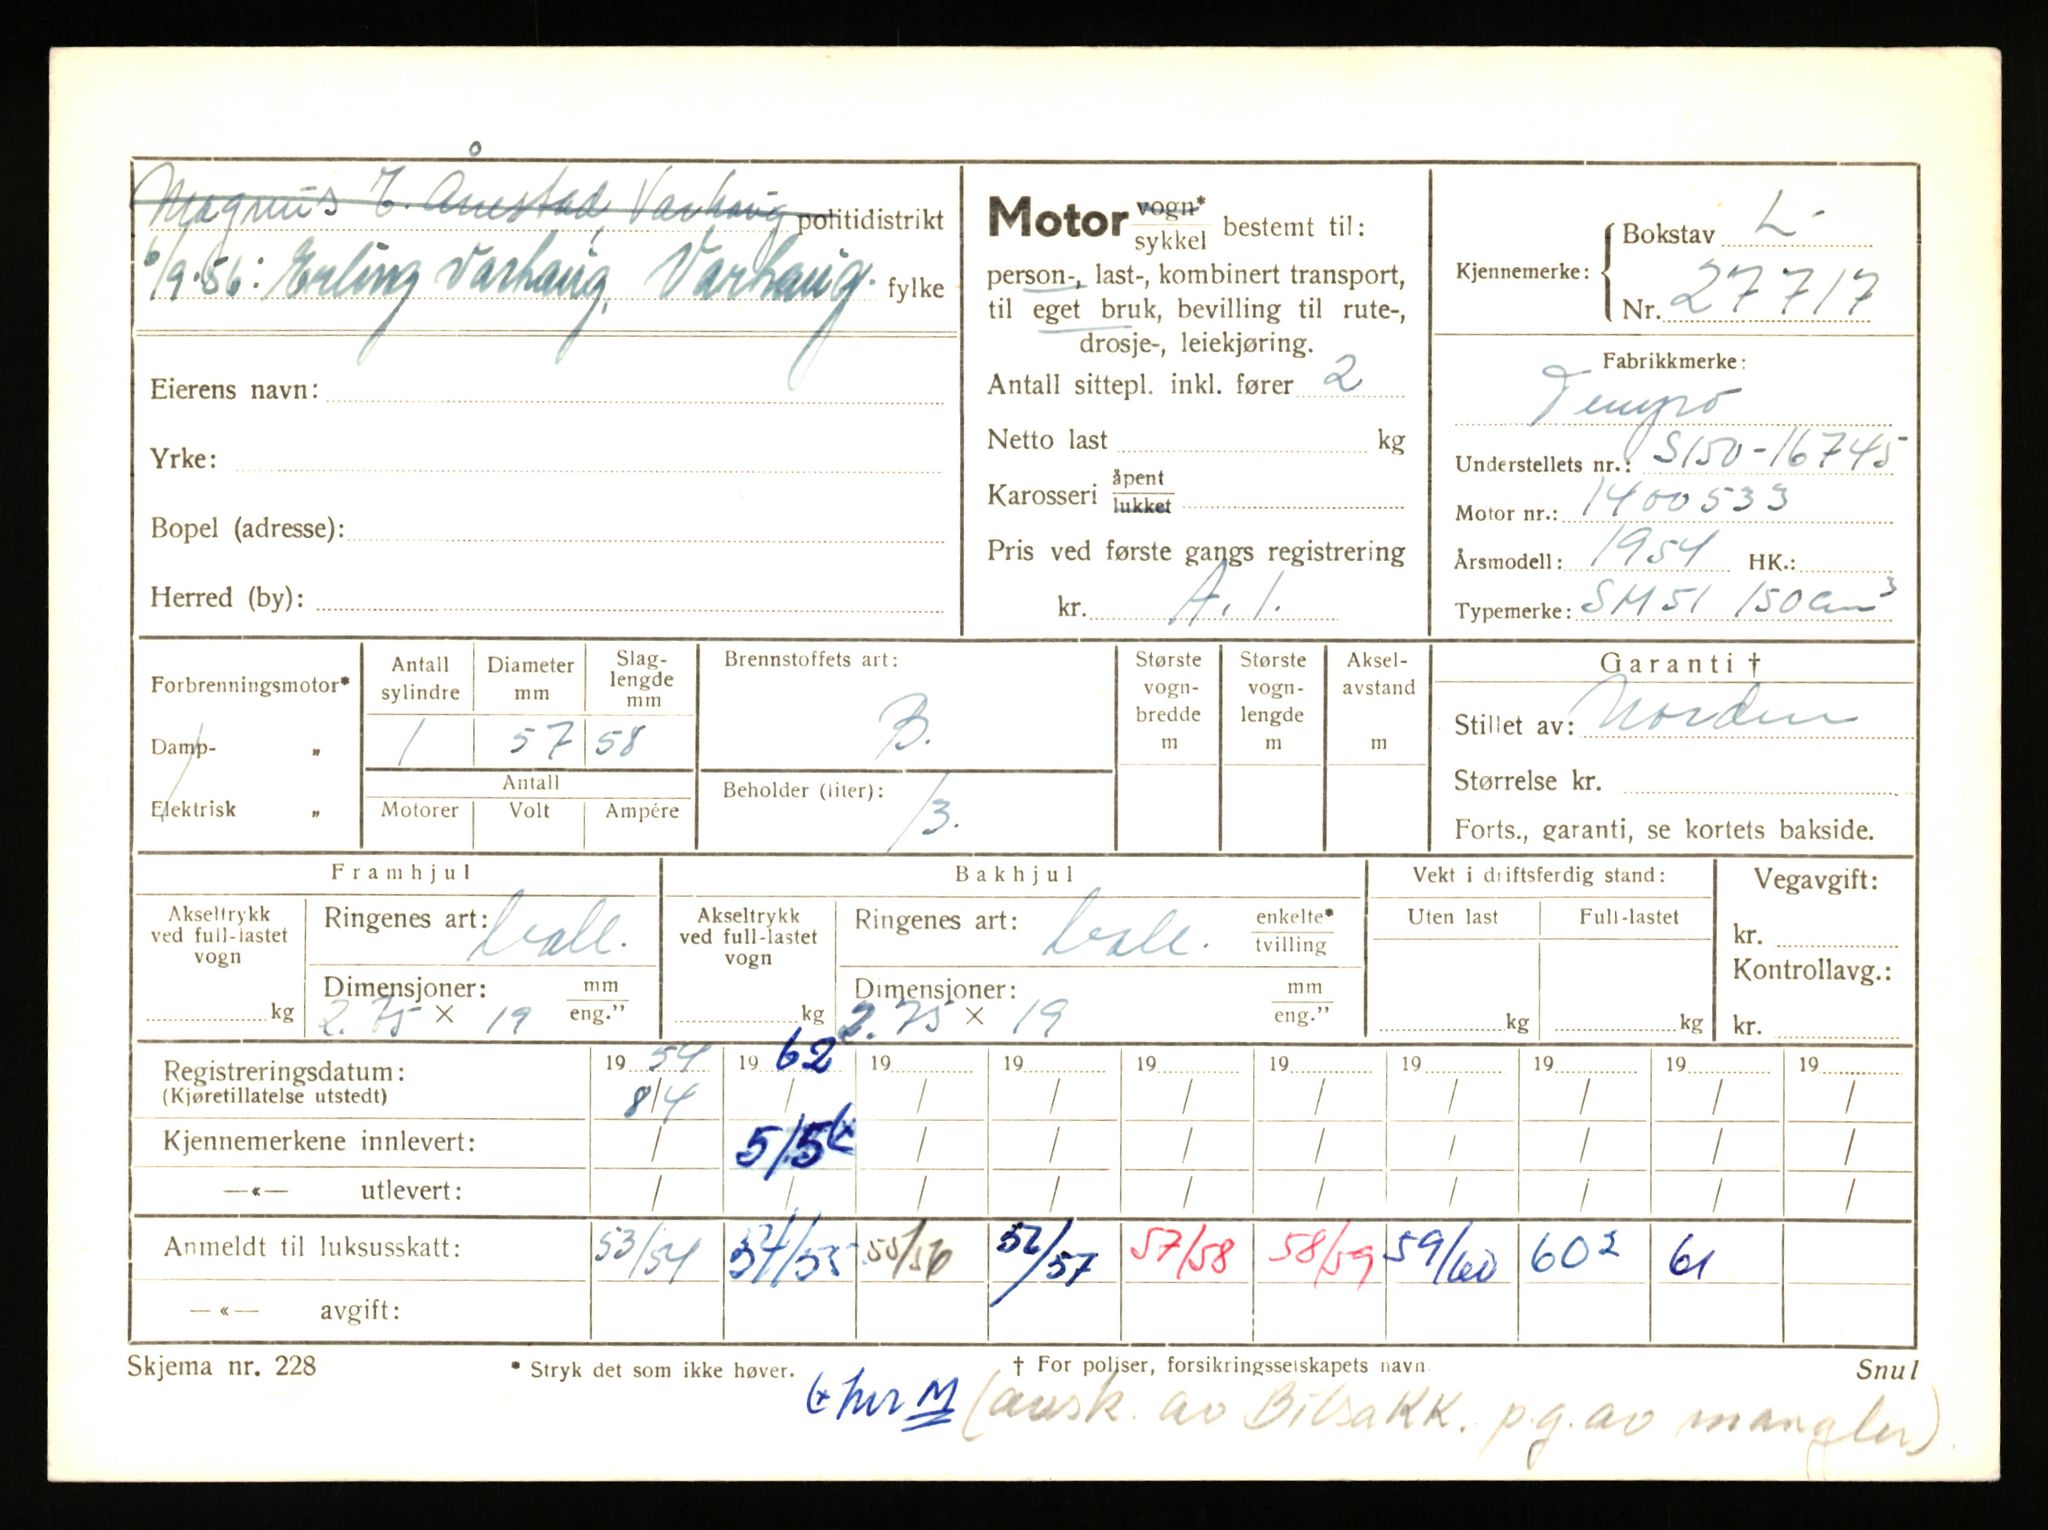 Magnus T. Ånestad, Varhaug politidistrikt
6/9-56: Erling Varhaug, Varhaug. fylke
Eierens navn:
Yrke:
Bopel (adresse):
Herred (by):
Motor vogn* sykkel bestemt til:
person-, last-, kombinert transport,
til eget bruk, bevilling til rute-,
drosje-, leiekjøring.
Antall sittepl. inkl. fører 2
Netto last kg
Karosseri åpent lukket
Pris ved første gangs registrering
kr. A. 1.
Kjennemerke: Bokstav L-
Nr. 27717
Fabrikkmerke:
Tempo
Understellets nr.: S150-16745
Motor nr.: 1400533
Årsmodell: 1954 HK.:
Typemerke: SM51 150cm³
Forbrenningsmotor*
Damp- „
Elektrisk „
Antall sylindre
Diameter mm
Slag-lengde mm
1 57 58
Antall
Motorer Volt Ampére
Brennstoffets art:
B.
Beholder (liter):
13.
Største vogn-bredde m
Største vogn-lengde m
Aksel-avstand m
Garanti †
Stillet av: Norden
Størrelse kr.
Forts., garanti, se kortets bakside.
Framhjul
Akseltrykk ved full-lastet vogn
kg
Ringenes art:
Dimensjoner: mm eng."
2.75 × 19
Bakhjul
Akseltrykk ved full-lastet vogn
kg
Ringenes art: enkelte* tvilling
Dimensjoner: mm eng."
2.75 × 19
Vekt i driftsferdig stand:
Uten last Full-lastet
kg kg
Vegavgift:
kr.
Kontrollavg.:
kr.
Registreringsdatum: 19 54 19 62 19 19 19 19 19 19 19 19
(Kjøretillatelse utstedt) 8/4 / / / / / / / / /
Kjennemerkene innlevert: / 5/5 / / / / / / / /
—«— utlevert: / / / / / / / / / /
Anmeldt til luksusskatt: 53/54 54/55 55/56 56/57 57/58 58/59 59/60 60² 61
—«— avgift:
Skjema nr. 228 * Stryk det som ikke høver. † For poliser, forsikringsselskapets navn. Snul
hos M (avsk. av Bilsakk. p.g.av mangler).